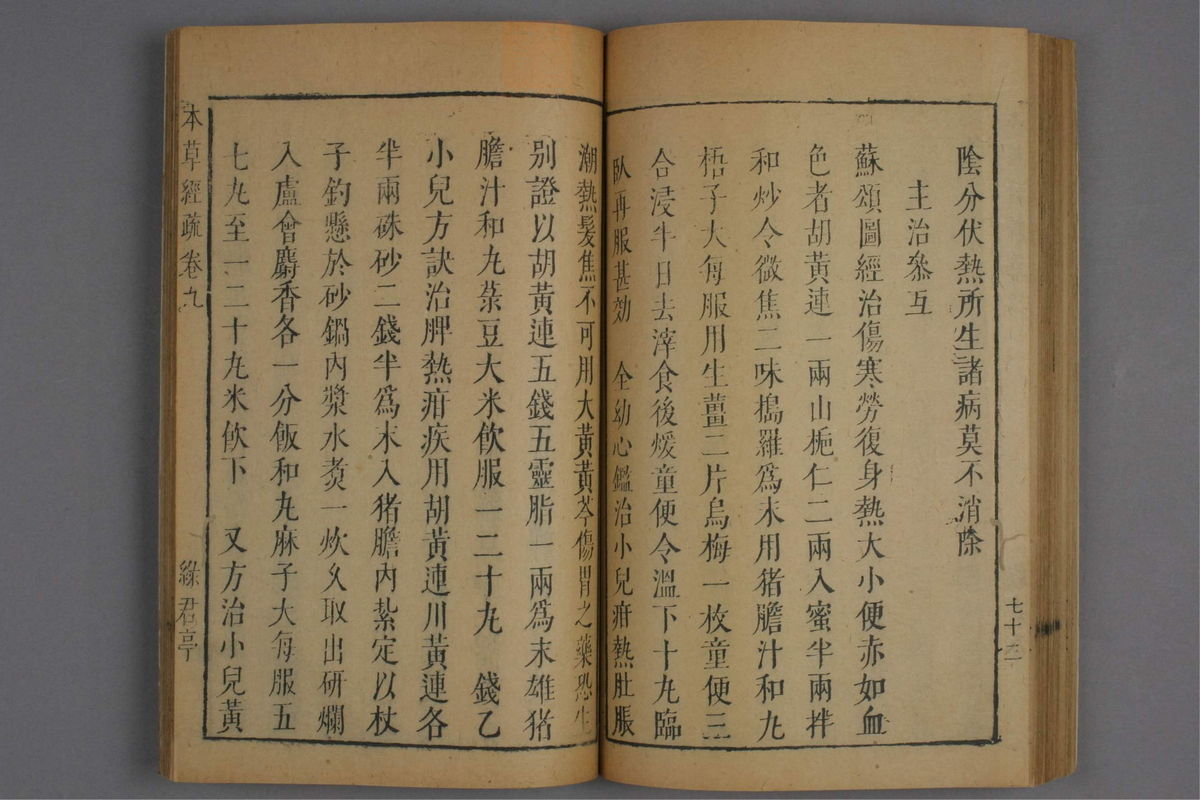 陰分伏熱所生諸病莫不消除
主治叅互
蘇頌圖經治傷寒勞復身熱大小便赤如血
色者胡黃連一兩山梔仁二兩入蜜半兩拌
和炒令微焦二味搗羅爲末用猪膽汁和丸
梧子大每服用生薑二片烏梅一枚童便三
合浸半日去滓食後煖童便令溫下十丸臨
臥再服甚効　全幼心鑑治小兒疳熱肚脹
潮熱髮焦不可用大黃黃芩傷胃之藥恐生
别證以胡黃連五錢五靈脂一兩爲末雄猪
膽汁和丸菉豆大米飮服一二十丸　錢乙
小兒方訣治脾熱疳疾用胡黃連川黃連各
半兩硃砂二錢半爲末入猪膽內紮定以杖
子釣懸於砂鍋內漿水煑一炊久取出研爛
入盧會麝香各一分飯和丸麻子大每服五
七丸至一二十丸米飮下　又方治小兒黃
本草經疏　卷九
綠君亭
七十